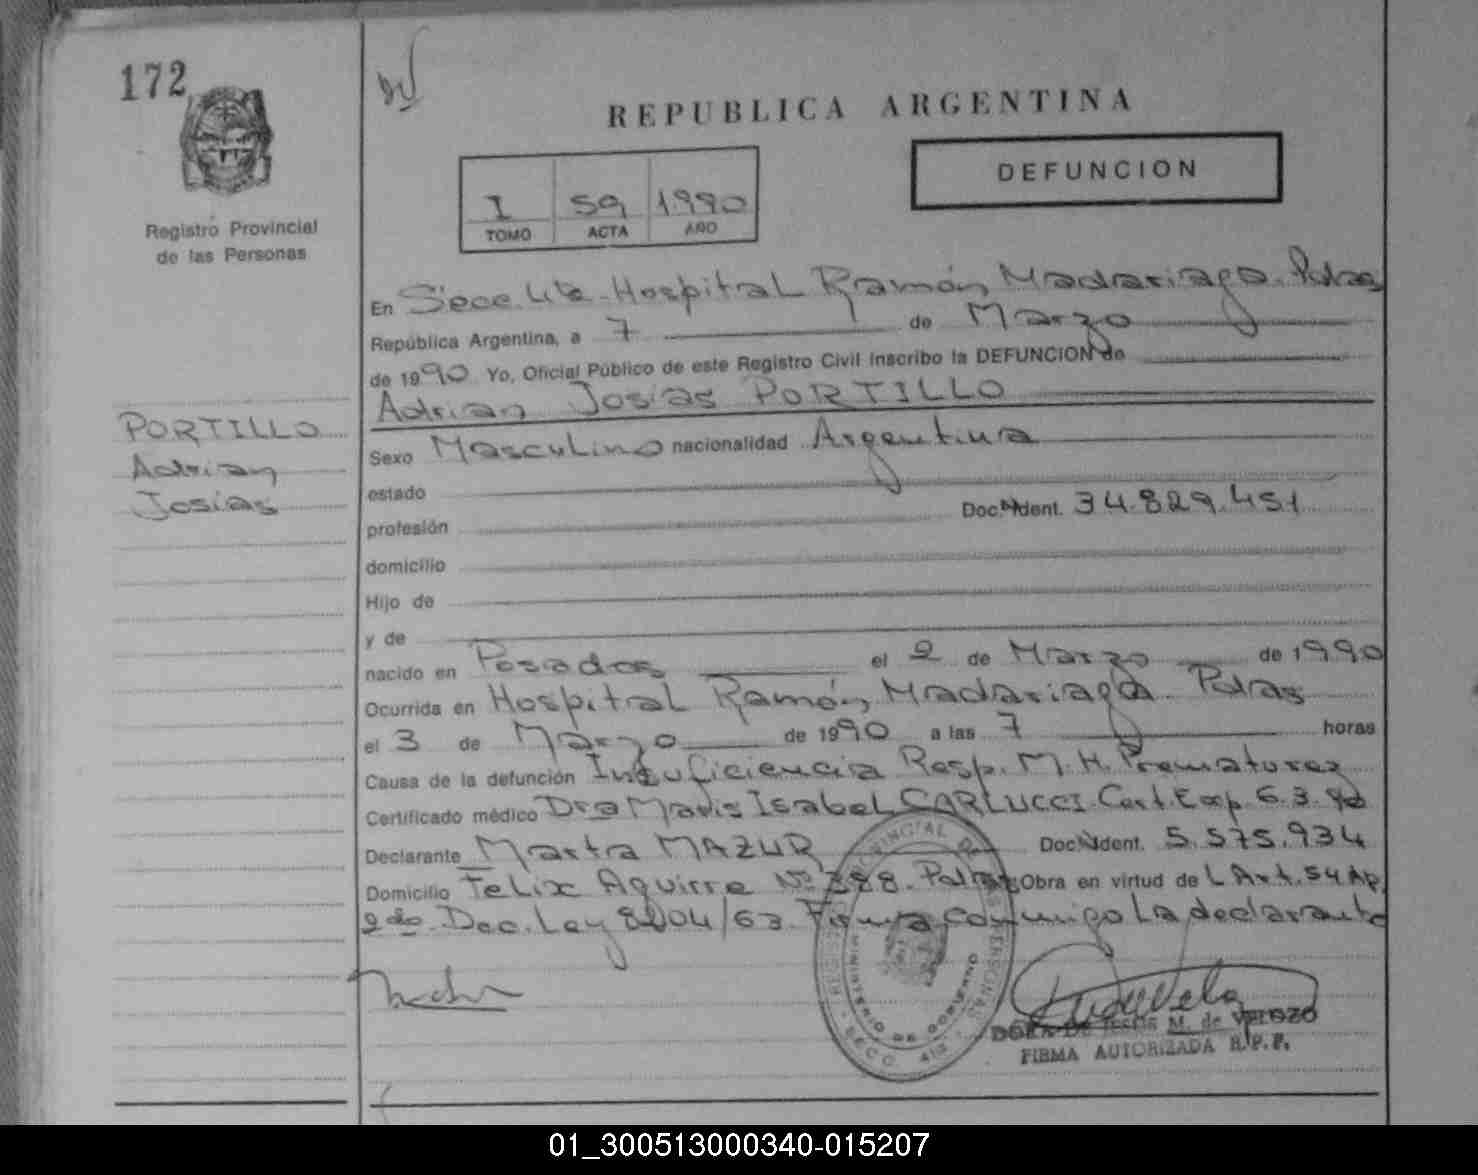 172
REPUBLICA ARGENTINA
DEFUNCION
I 59 1990
TOMO ACTA AÑO
Registro Provincial
de las Personas
En Secc. 4ta. Hospital Ramón Madariaga. Pdas
República Argentina, a 7 de Marzo
de 1990 Yo, Oficial Público de este Registro Civil inscribo la DEFUNCION de
Adrian Josías PORTILLO
PORTILLO
Adrian
Josías
Sexo Masculino nacionalidad Argentina
estado
profesión Doc. Ident. 34.829.451
domicilio
Hijo de
y de
nacido en Posadas el 2 de Marzo de 1990
Ocurrida en Hospital Ramón Madariaga Pdas
el 3 de Marzo de 1990 a las 7 horas
Causa de la defunción Insuficiencia Resp. M.H. Prematurez
Certificado médico Dra Maris Isabel CARLUCCI. Cert. Exp. 6.3.90
Declarante Marta MAZUR Doc. Ident. 5.575.934
Domicilio Felix Aguirre Nº 388. Pdas Obra en virtud de L Art. 54 Ap.
2do. Dec. Ley 8204/63. Firma conmigo la declarante
REGISTRO PROVINCIAL DE LAS PERSONAS
MINISTERIO DE GOBIERNO
SECC. 4ta
DORA DE JESUS M. de VEROZO
FIRMA AUTORIZADA R.P.P.
01_300513000340-015207